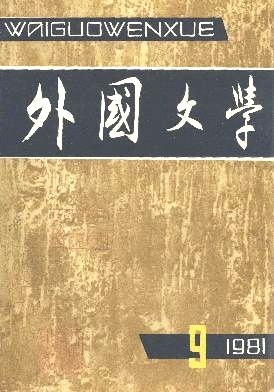 WAIGUOWENXUE
外國文學
9 1981